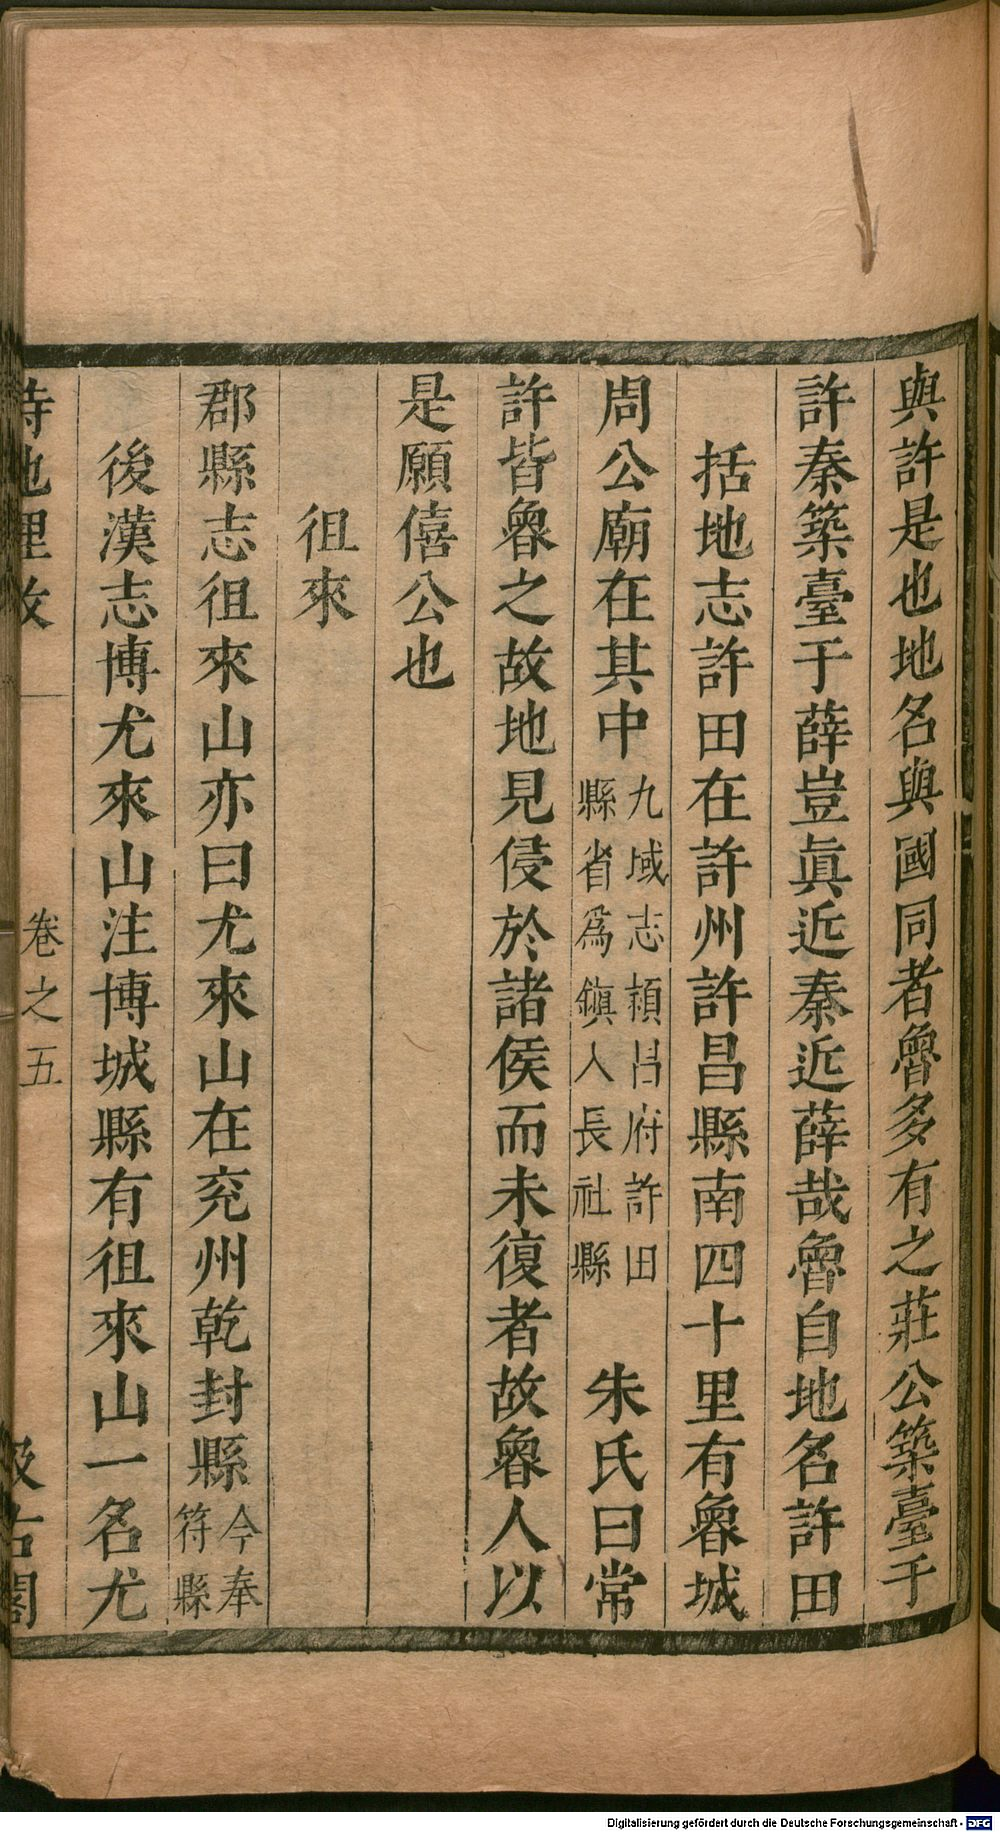 與許是也地名與國同者魯多有之莊公築臺于
許秦築臺于薛豈眞近秦近薛哉魯自地名許田
括地志許田在許州許昌縣南四十里有魯城
周公廟在其中九域志潁昌府許田縣省爲鎭入長社縣 朱氏曰常
許皆魯之故地見侵於諸侯而未復者故魯人以
是願僖公也
徂來
郡縣志徂來山亦曰尤來山在兖州乾封縣今奉符縣
後漢志博尤來山注博城縣有徂來山一名尤
詩地里攷 卷之五 汲古閣
Digitalisierung gefördert durch die Deutsche Forschungsgemeinschaft - DFG